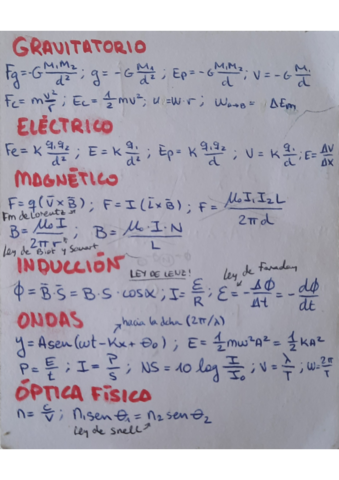 GRAVITATORIO
Fg = -G M₁M₂/d² ; g = -G M₁/d² ; Ep = -G M₁M₂/d ; V = -G M₁/d
Fc = m v²/r ; Ec = 1/2 mv² ; v = w·r ; Wₐ→ʙ = ΔEm
ELÉCTRICO
Fe = K q₁q₂/d² ; E = K q₁/d² ; Ep = K q₁q₂/d ; V = K q₁/d ; E = ΔV/ΔX
MAGNÉTICO
F = q(v̄ x B̄) ; F = I(l̄ x B̄) ; F = μ₀I₁I₂L/2πd
Fm de Lorentz
B = μ₀I/2πr ; B = μ₀·I·N/L
Ley de Biot y Savart
LEY DE LENZ!
INDUCCIÓN
Ley de Faraday
Φ = B̄·S̄ = B·S·cosα ; I = E/R ; Ɛ = -ΔΦ/Δt = -dΦ/dt
ONDAS
hacia la dcha (2π/λ)
y = Asen(wt - Kx + θ₀) ; E = 1/2 mw²A² = 1/2 KA²
P = E/t ; I = P/S ; NS = 10 log I/I₀ ; V = λ/T ; w = 2π/T
ÓPTICA FÍSICO
n = c/v ; n₁senθ₁ = n₂senθ₂
Ley de snell